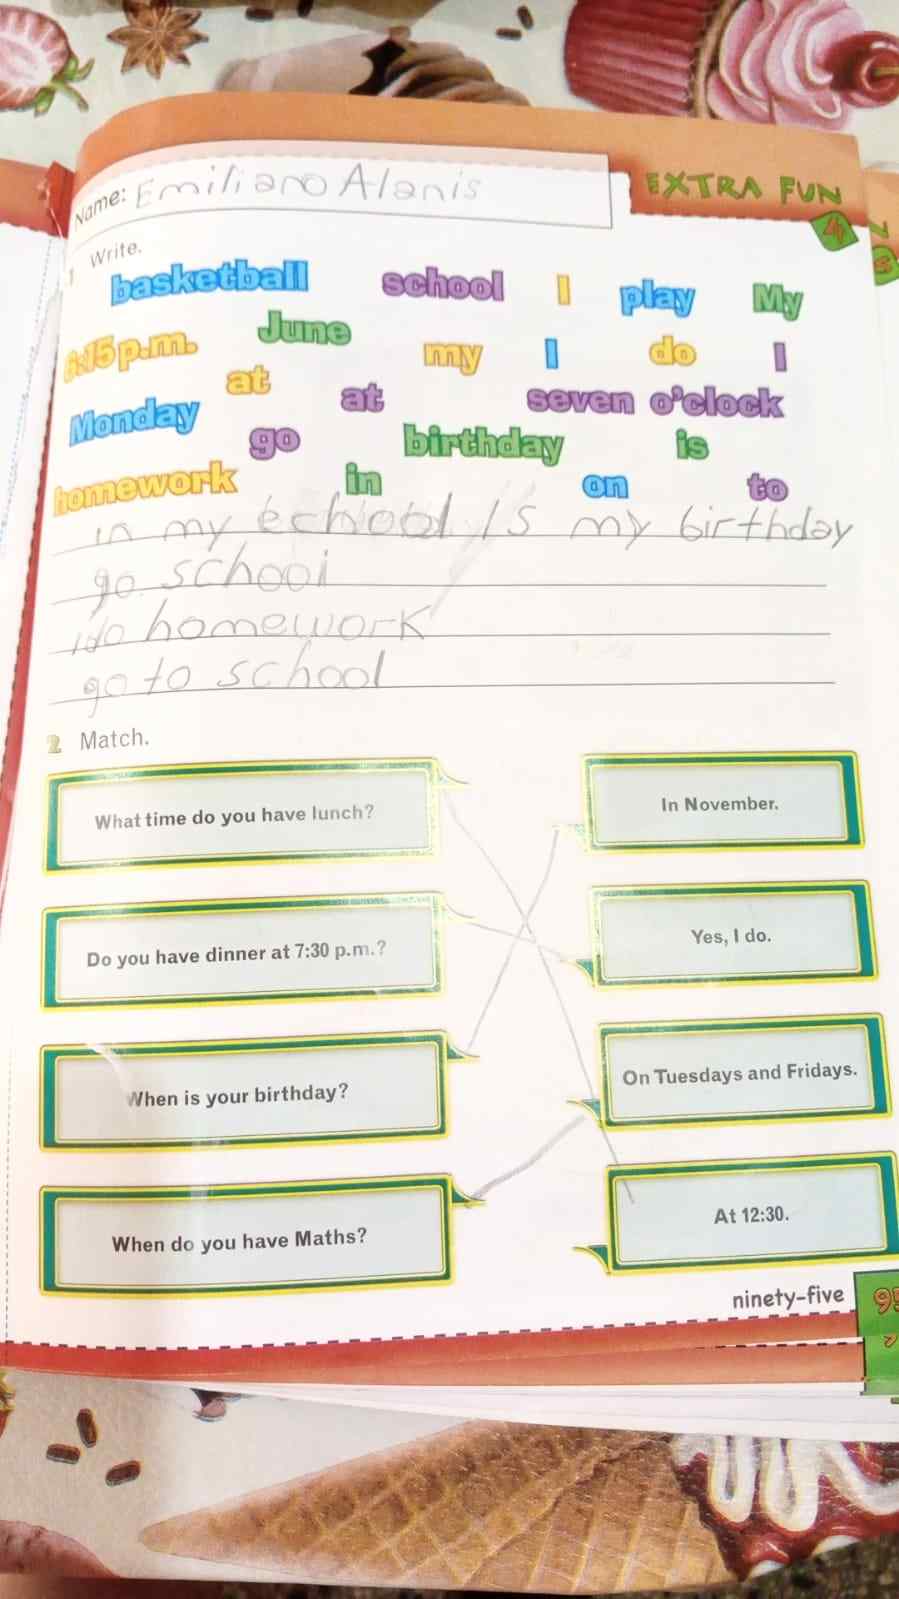 Name: Emiliano Alanis
EXTRA FUN
4
1 Write.
basketball school I play My
6:15 p.m. June my I do I
at at seven o'clock
Monday go birthday is
homework in on to
in my echool Is my birthday
go school
ido homework
go to school
2 Match.
What time do you have lunch?
In November.
Do you have dinner at 7:30 p.m.?
Yes, I do.
When is your birthday?
On Tuesdays and Fridays.
When do you have Maths?
At 12:30.
ninety-five
95